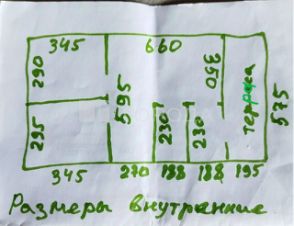 345 660
290
350
595
терраса
575
295
230
230
345 270 188 188 195
Размеры внутренние